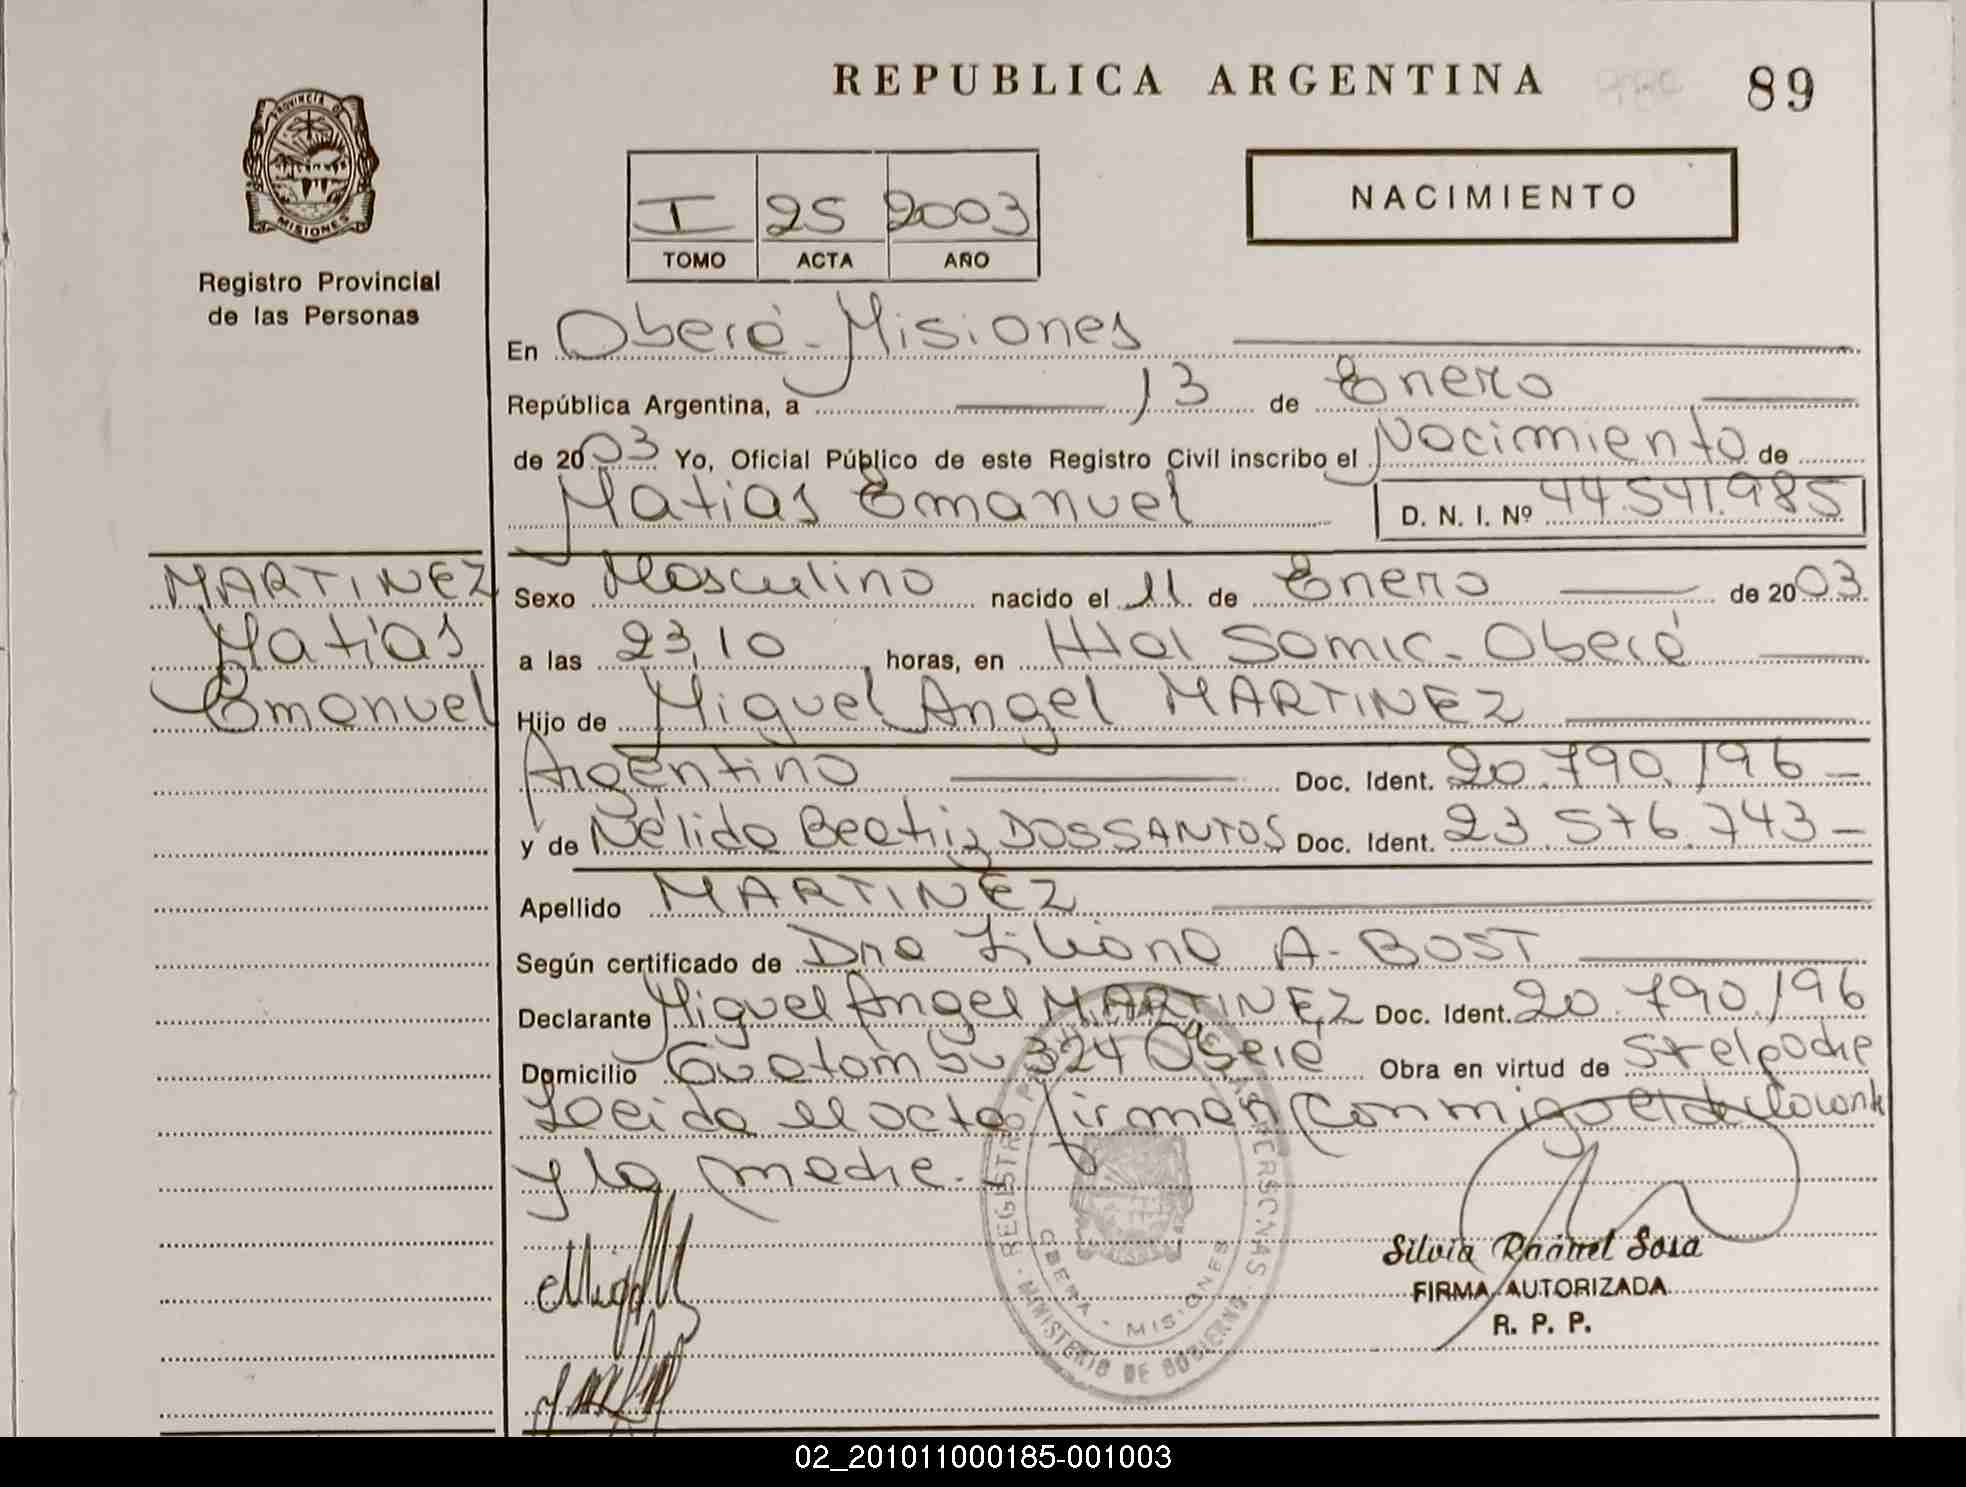 REPUBLICA ARGENTINA
89
PROVINCIA DE MISIONES
Registro Provincial
de las Personas
I 25 2003
TOMO ACTA AÑO
NACIMIENTO
En Oberá - Misiones
República Argentina, a 13 de Enero
de 2003 Yo, Oficial Público de este Registro Civil inscribo el Nacimiento de
Matias Emanuel D. N. I. Nº 44.541.985
MARTINEZ
Matias
Emanuel
Sexo Masculino nacido el 11 de Enero de 2003
a las 23,10 horas, en Htal Samic - Oberá
Hijo de Miguel Angel MARTINEZ
Argentino Doc. Ident. 20.790.196
y de Nélida Beatriz DOSSANTOS Doc. Ident. 23.576.743
Apellido MARTINEZ
Según certificado de Dra Liliana A. BOST
Declarante Miguel Angel MARTINEZ Doc. Ident. 20.790.196
Domicilio Guatambu 324 Oberá Obra en virtud de ser el padre
Leida el acta firman conmigo el declarante
y la madre.
REGISTRO PROVINCIAL DE LAS PERSONAS
OBERA - MISIONES
MINISTERIO DE GOBIERNO
Silvia Raquel Sosa
FIRMA AUTORIZADA
R. P. P.
02_201011000185-001003